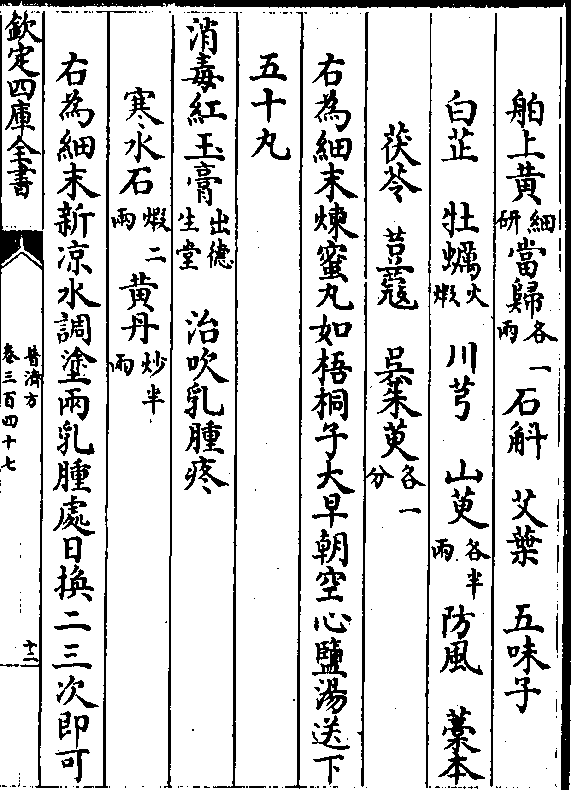 舶上黄細研當歸各一兩石斛 艾葉 五味子
白芷 牡蠣火煅 川芎 山茱各半兩防風 藁本
茯苓 荳蔻 吳茱萸各一分
右為細末煉蜜丸如梧桐子大早朝空心鹽湯送下
五十丸
消毒紅玉膏出德生堂 治吹乳腫疼
寒水石煅二兩黄丹炒半兩
右為細末新凉水調塗兩乳腫處日換二三次即可
欽定四庫全書
普濟方
卷三百四十七
十二